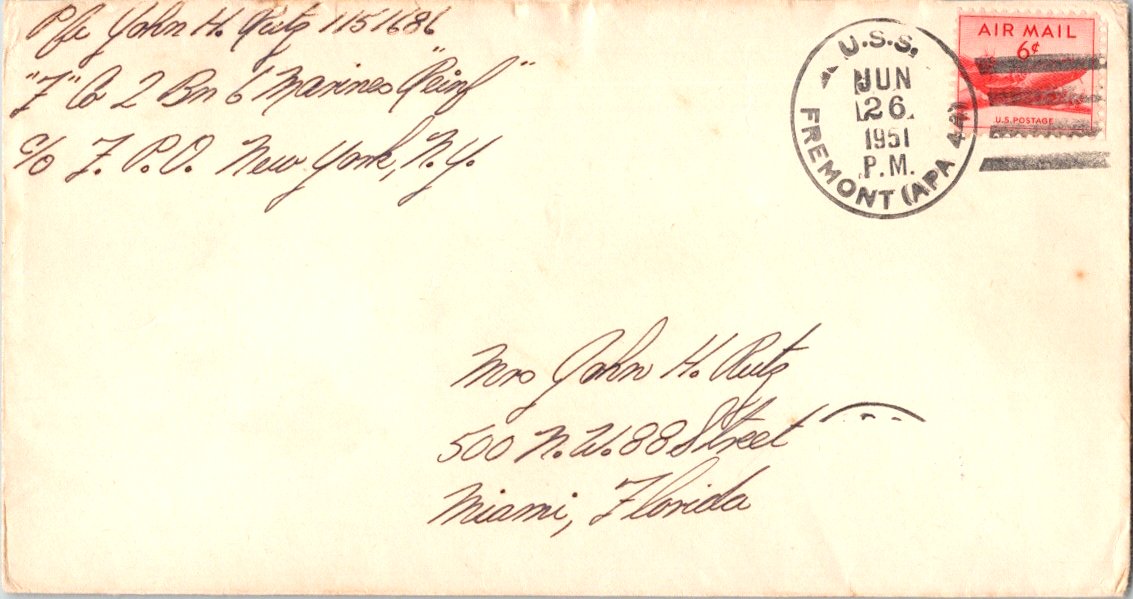 Pfc John H. Rutz 1151686
"F" Co 2 Bn 6 Marines "Reinf"
c/o F. P. O. New York, N.Y.
U.S.S.
JUN
26
1951
P.M.
FREMONT (APA 44)
AIR MAIL
6¢
U.S. POSTAGE
Mrs John H. Rutz
500 N.W. 88 Street
Miami, Florida